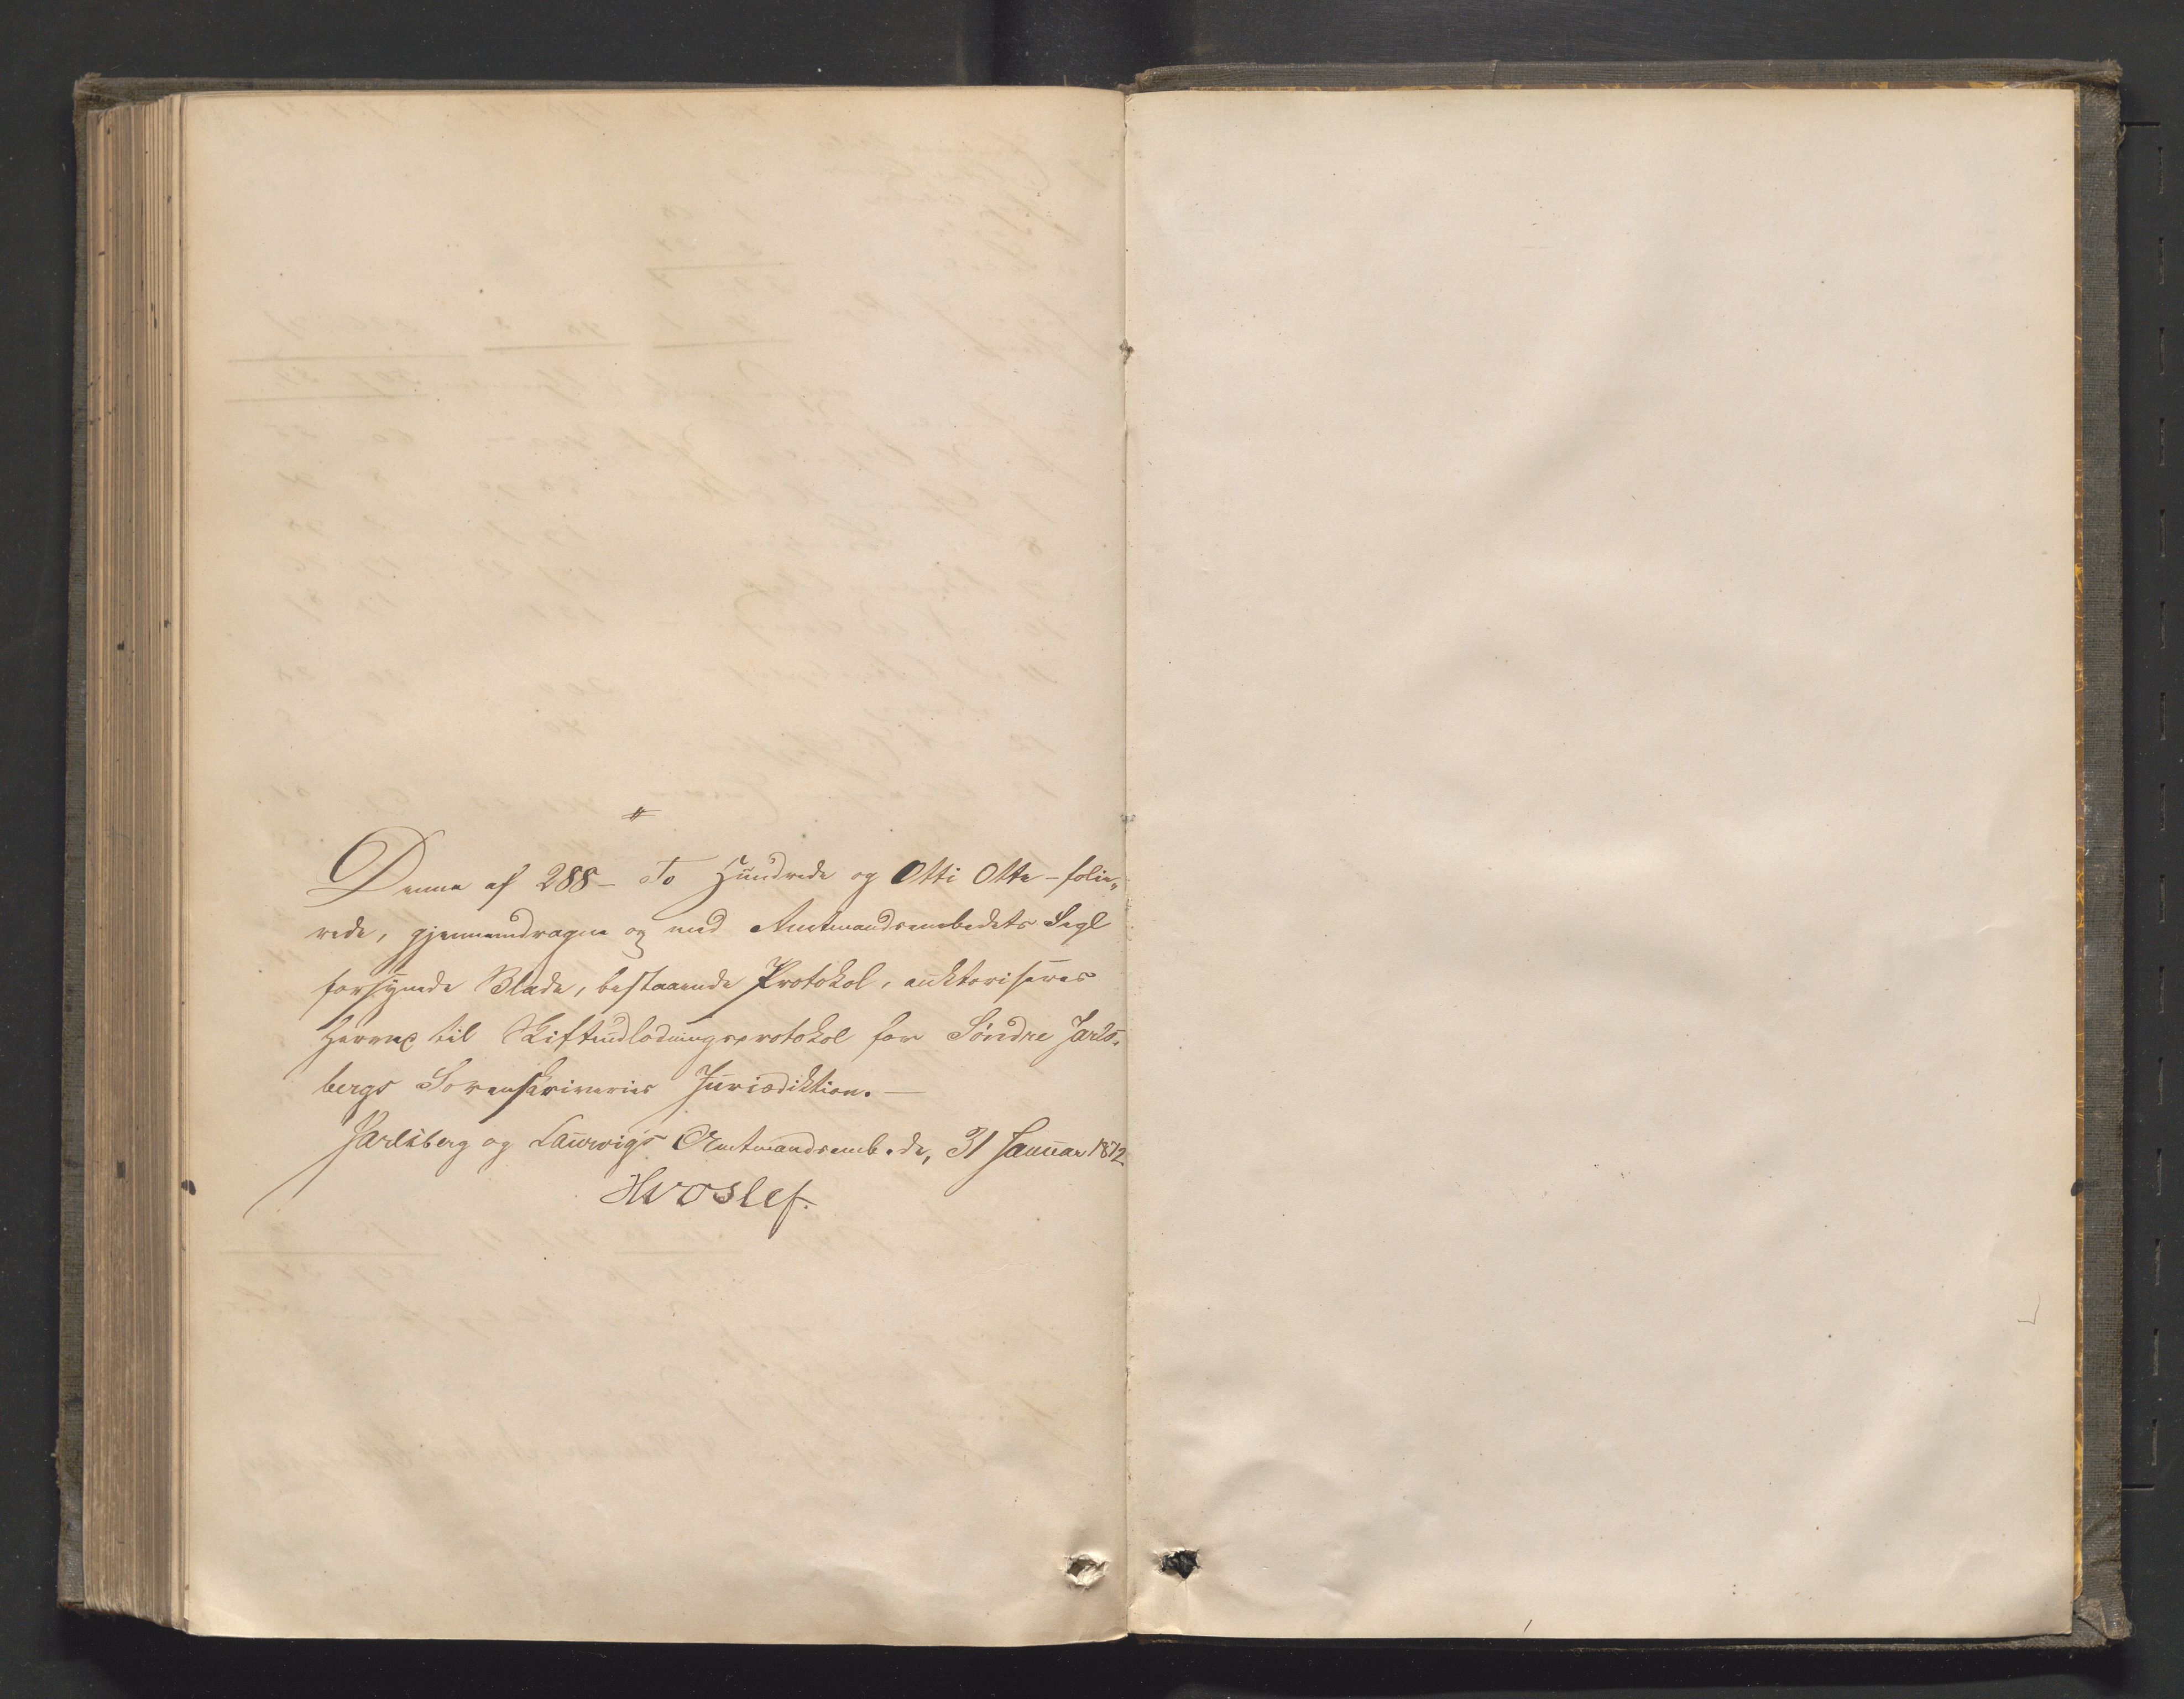 Denne af 288 – To Hundrede og Otti Otte – folie„
rede, gjennemdragne og med Amtmandsembedets Segl
forsynede Blade, bestaaende Protokol, auktoriseres
herved til Skifteudlodningsprotokol for Søndre Jarls-
bergs Sorenskriveries Jurisdiktion. —
Jarlsberg og Laurvigs Amtmandsembede, 31 Januar 1872
Hvoslef.